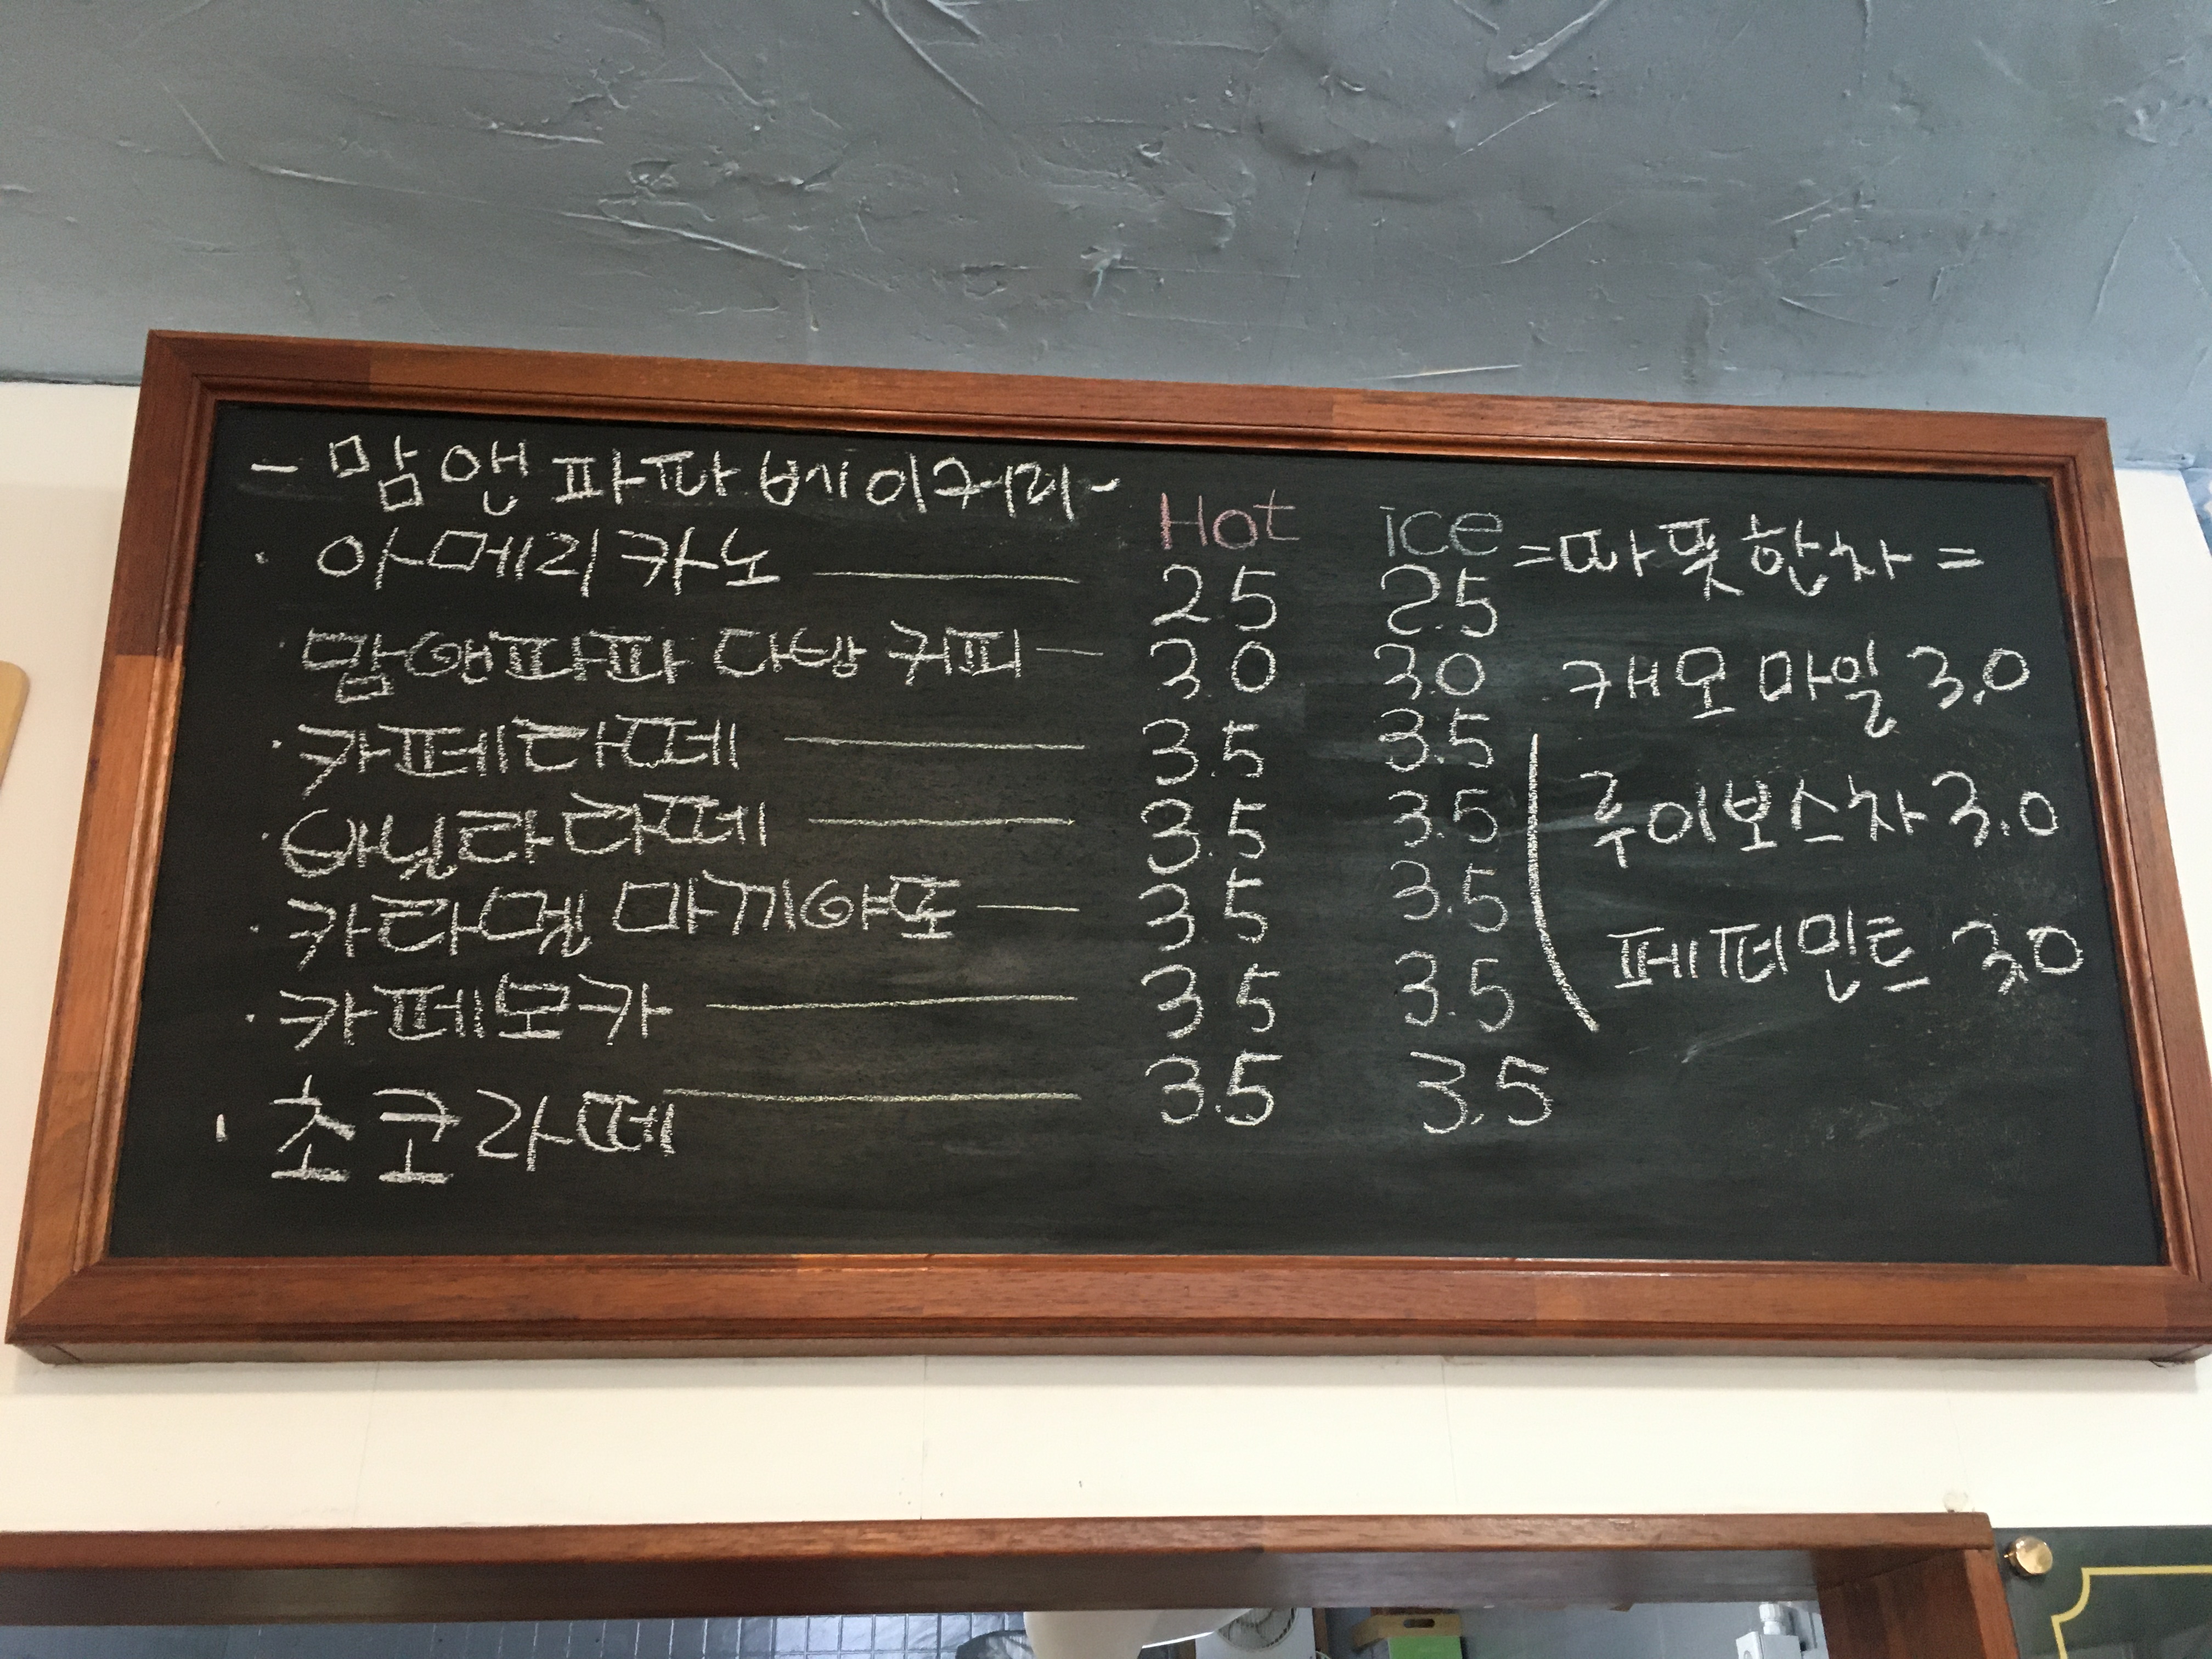 - 맘앤파파 베이커리 -
Hot ice
· 아메리카노 2.5 2.5
· 맘앤파파 다방 커피 3.0 3.0
· 카페라떼 3.5 3.5
· 바닐라라떼 3.5 3.5
· 카라멜 마끼아또 3.5 3.5
· 카페모카 3.5 3.5
· 초코라떼 3.5 3.5
= 따뜻한차 =
캐모마일 3.0
루이보스차 3.0
페퍼민트 3.0